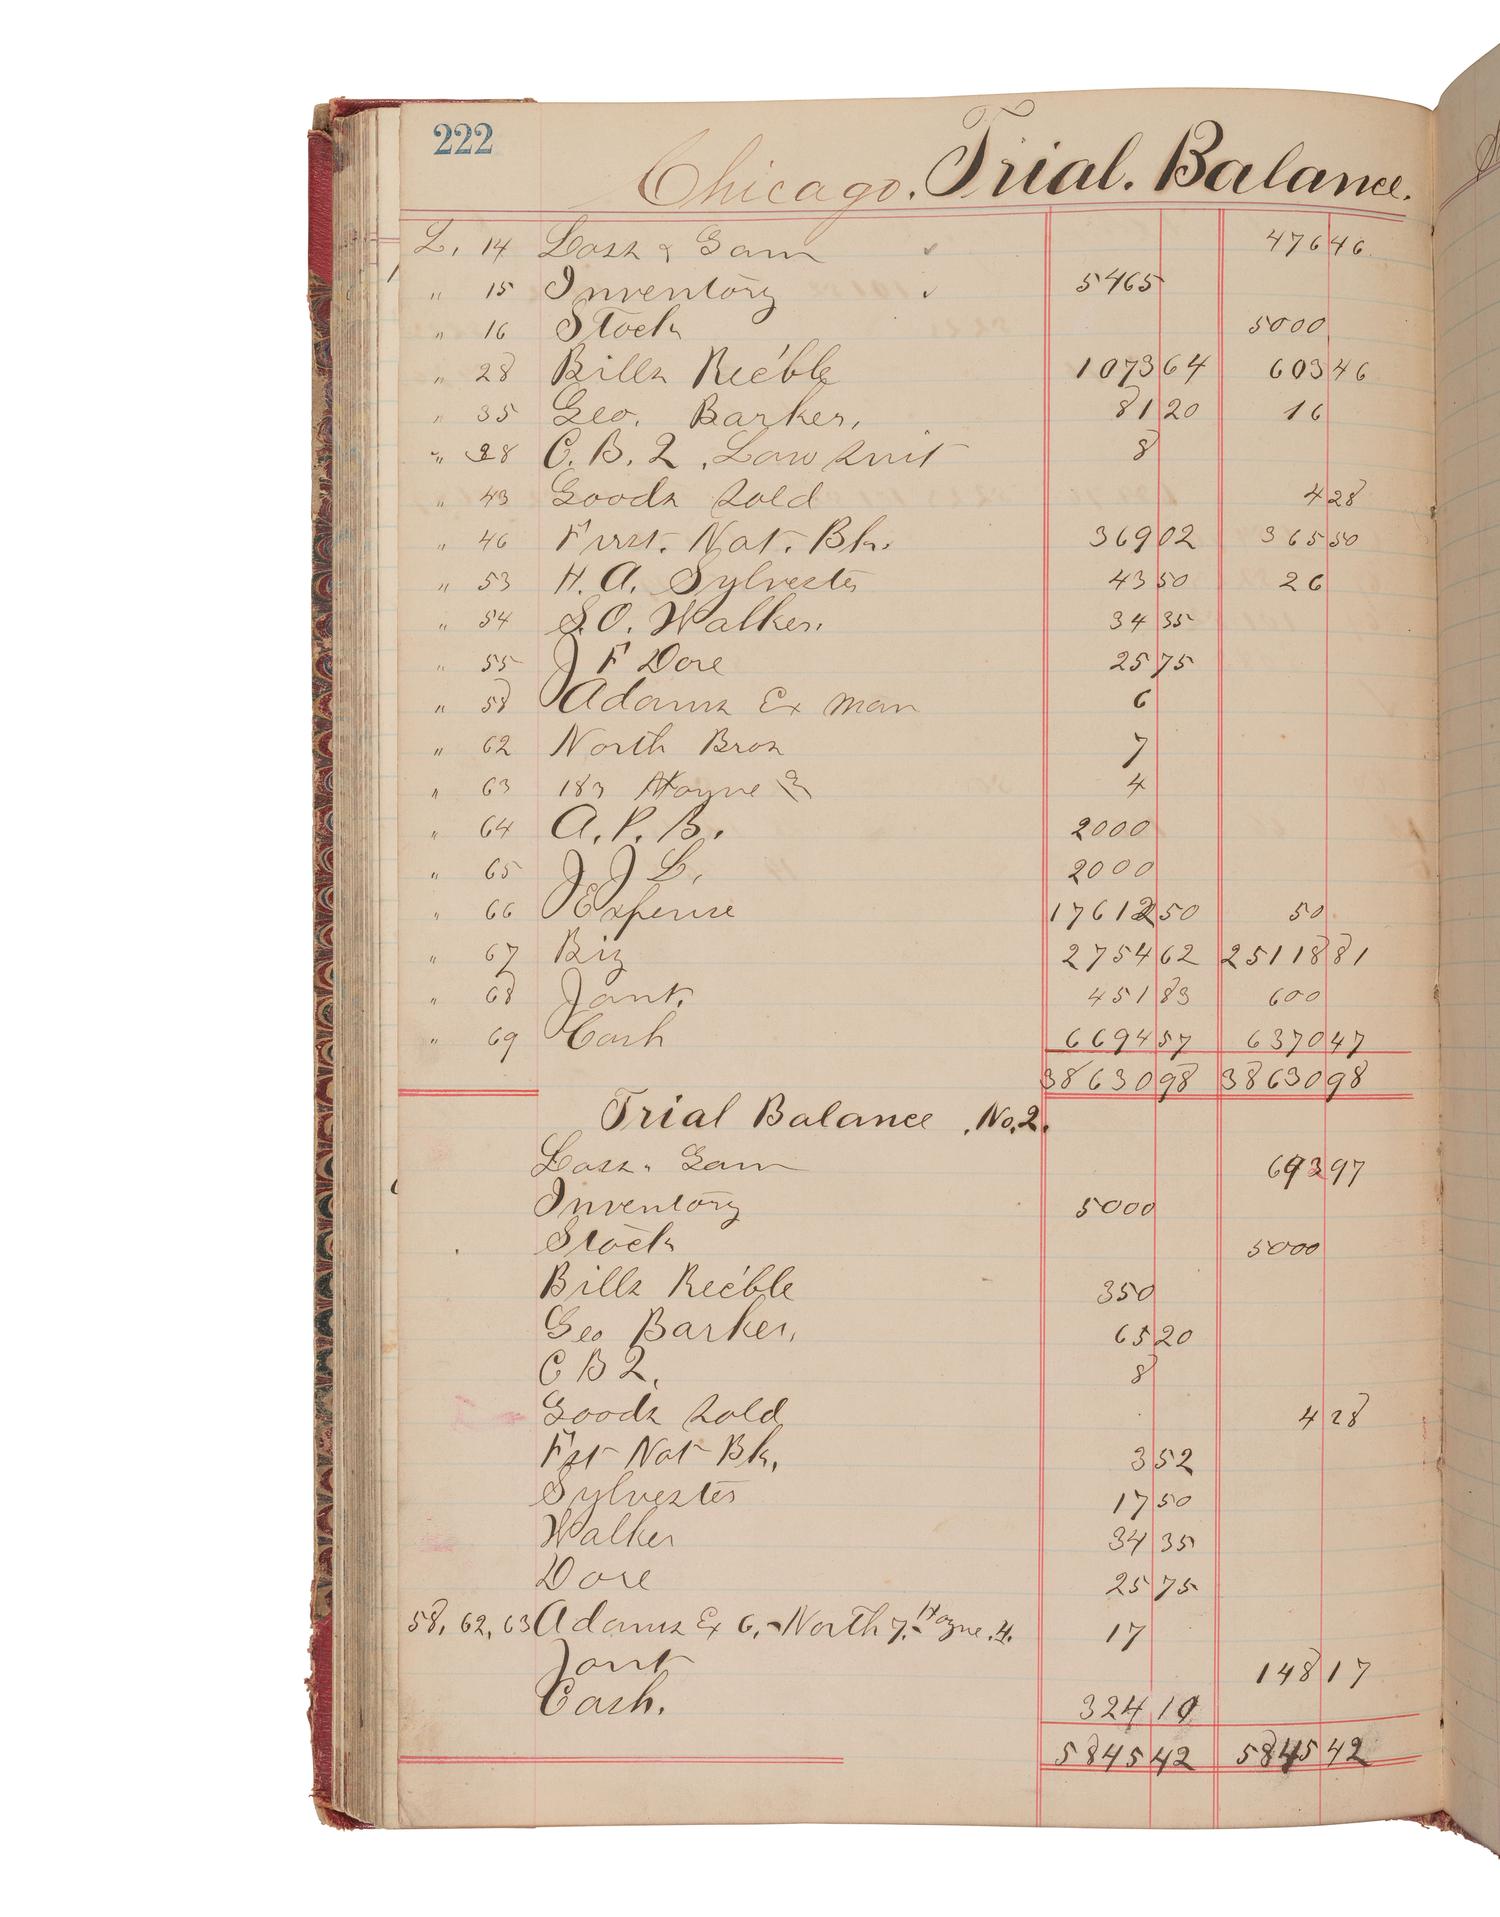 222
Chicago. Trial. Balance.
L. 14 Loss & Gain ✓ 476 46
" 15 Inventory ✓ 5465
" 16 Stock 5000
" 28 Bills Rec'ble 1073 64 603 46
" 35 Geo. Barker. 81 20 16
" 28 C. B. Q. Law Suit 8
" 43 Goods Sold 4 28
" 46 First. Nat. Bk. 369 02 365 50
" 53 H. A. Sylvester 43 50 26
" 54 S. O. Walker. 34 35
" 55 J F Dore 25 75
" 58 Adams Ex Man 6
" 62 North Bros 7
" 63 183 Hoyne 4
" 64 A. P. B. 2000
" 65 J J L. 2000
" 66 Expense 17612 50 50
" 67 Biz 2754 62 25118 81
" 68 Jant. 451 83 600
" 69 Cash 6694 57 6370 47
38630 98 38630 98
Trial Balance . No. 2.
Loss. Gain 693 97
Inventory 5000
Stock 5000
Bills Rec'ble 350
Geo Barker. 65 20
C B Q. 8
Goods Sold 4 28
Fst Nat Bk. 3 52
Sylvester 17 50
Walker 34 35
Dore 25 75
58, 62, 63 Adams Ex 6.- North 7.- Hoyne .4. 17
Jant 148 17
Cash. 324 10
5845 42 5845 42